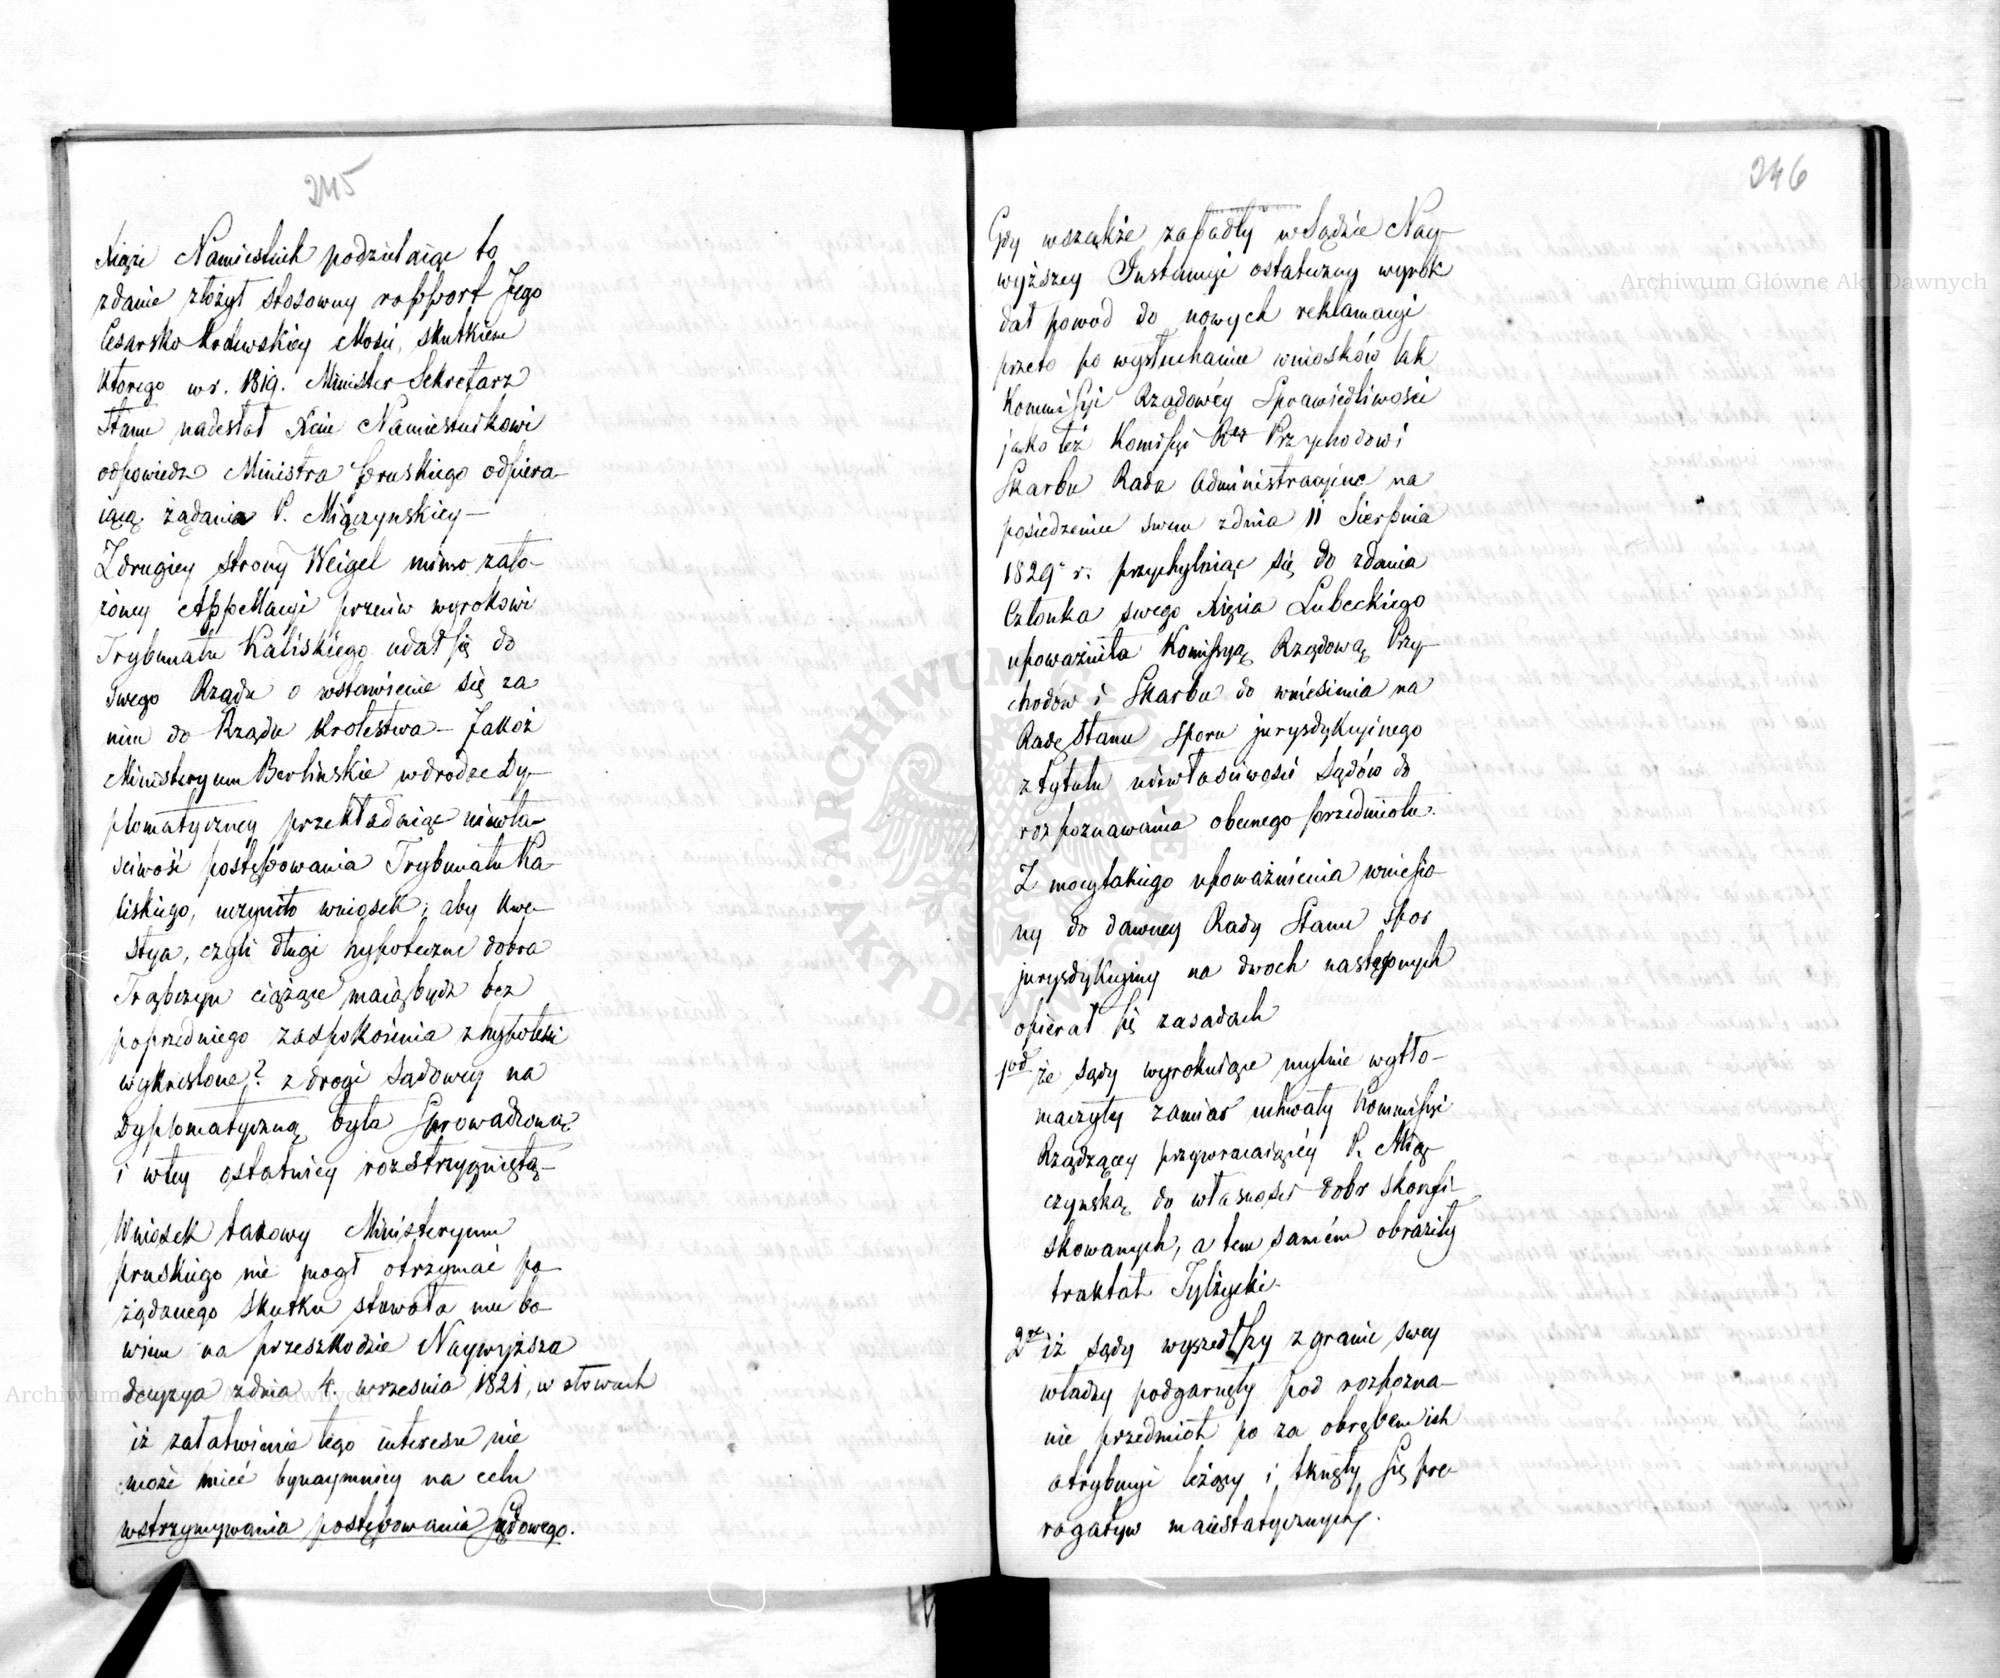 245
Xiąże Namiestnik podzielaiąc to
zdanie złożył stosowny rapport Jego
Cesarsko Krolewskiey Mości, skutkiem
ktorego w r. 1819. Minister Sekretarz
Stanu nadesłał Xciu Namiestnikowi
odpowiedz Ministra Pruskiego odpiera-
iącą żądania P. Miączynskiey —
Z drugiey strony Weigel mimo zało-
żoney Appellacyi przeciw wyrokowi
Trybunału Kaliskiego udał się do
swego Rządu o wstawienie się za
nim do Rządu Krolestwa — Jakoż
Ministeryum Berlinskie w drodze Dy-
plomatyczney przekładaiąc niewła-
sciwość postępowania Trybunału Ka-
liskiego, uczyniło wniosek; aby kwe-
stya, czyli długi hypoteczne dobra
Trąbczyn ciążące maią bydz bez
poprzedniego zaspokoienia z hypoteki
wykreslone? z drogi sądowey na
Dyplomatyczną była sprowadzoną
i w tey ostatniey rozstrzygniętą —
Wniosek takowy Ministeryum
pruskiego nie mogł otrzymać po-
żądanego skutku stawała mu bo-
wiem na przeszkodzie Naywyższa
decyzya z dnia 4. wrzesnia 1821, w słowach
iż załatwienie tego interesu nie
może mieć bynaymniey na celu
wstrzymywania postępowania sądowego.
246
Gdy wszakże zapadły w Sądzie Nay-
wyższey Instancyi ostateczny wyrok
dał powod do nowych reklamacyi
przeto po wysłuchaniu wniosków tak
Kommissyi Rządowéy Sprawiedliwości
jako też Komissyi Przychodow i
Skarbu Rada Administracyina na
posiedzeniu swem z dnia 11 Sierpnia
1829 r. przychylaiąc się do zdania
Członka swego Xięcia Lubeckiego
upoważniła Komissyą Rządową Przy-
chodów i Skarbu do wniesienia na
Radę Stanu sporu jurysdykcyinego
z tytułu niewłaściwości sądów do
rozpoznawania obecnego przedmiotu.
Z mocy takiego upoważnienia wniesio-
ny do dawney Rady Stanu spor
jurysdykcyiny na dwoch następnych
opierał się zasadach
1od że sądy wyrokuiące mylnie wytło-
maczyły zamiar uchwały Kommissyi
Rządzącey przywracaiącéy P. Mią-
czynską do własności dobr skonfi-
skowanych, a tem samém obraziły
traktat Tylżycki.
2re iż sądy wyszedłszy z granic swey
władzy podgarnęły pod rozpozna-
nie przedmiot po za obrębem ich
atrybucyi leżący i tknęły się pre-
rogatyw maiestatycznych.
Archiwum Główne Akt Dawnych